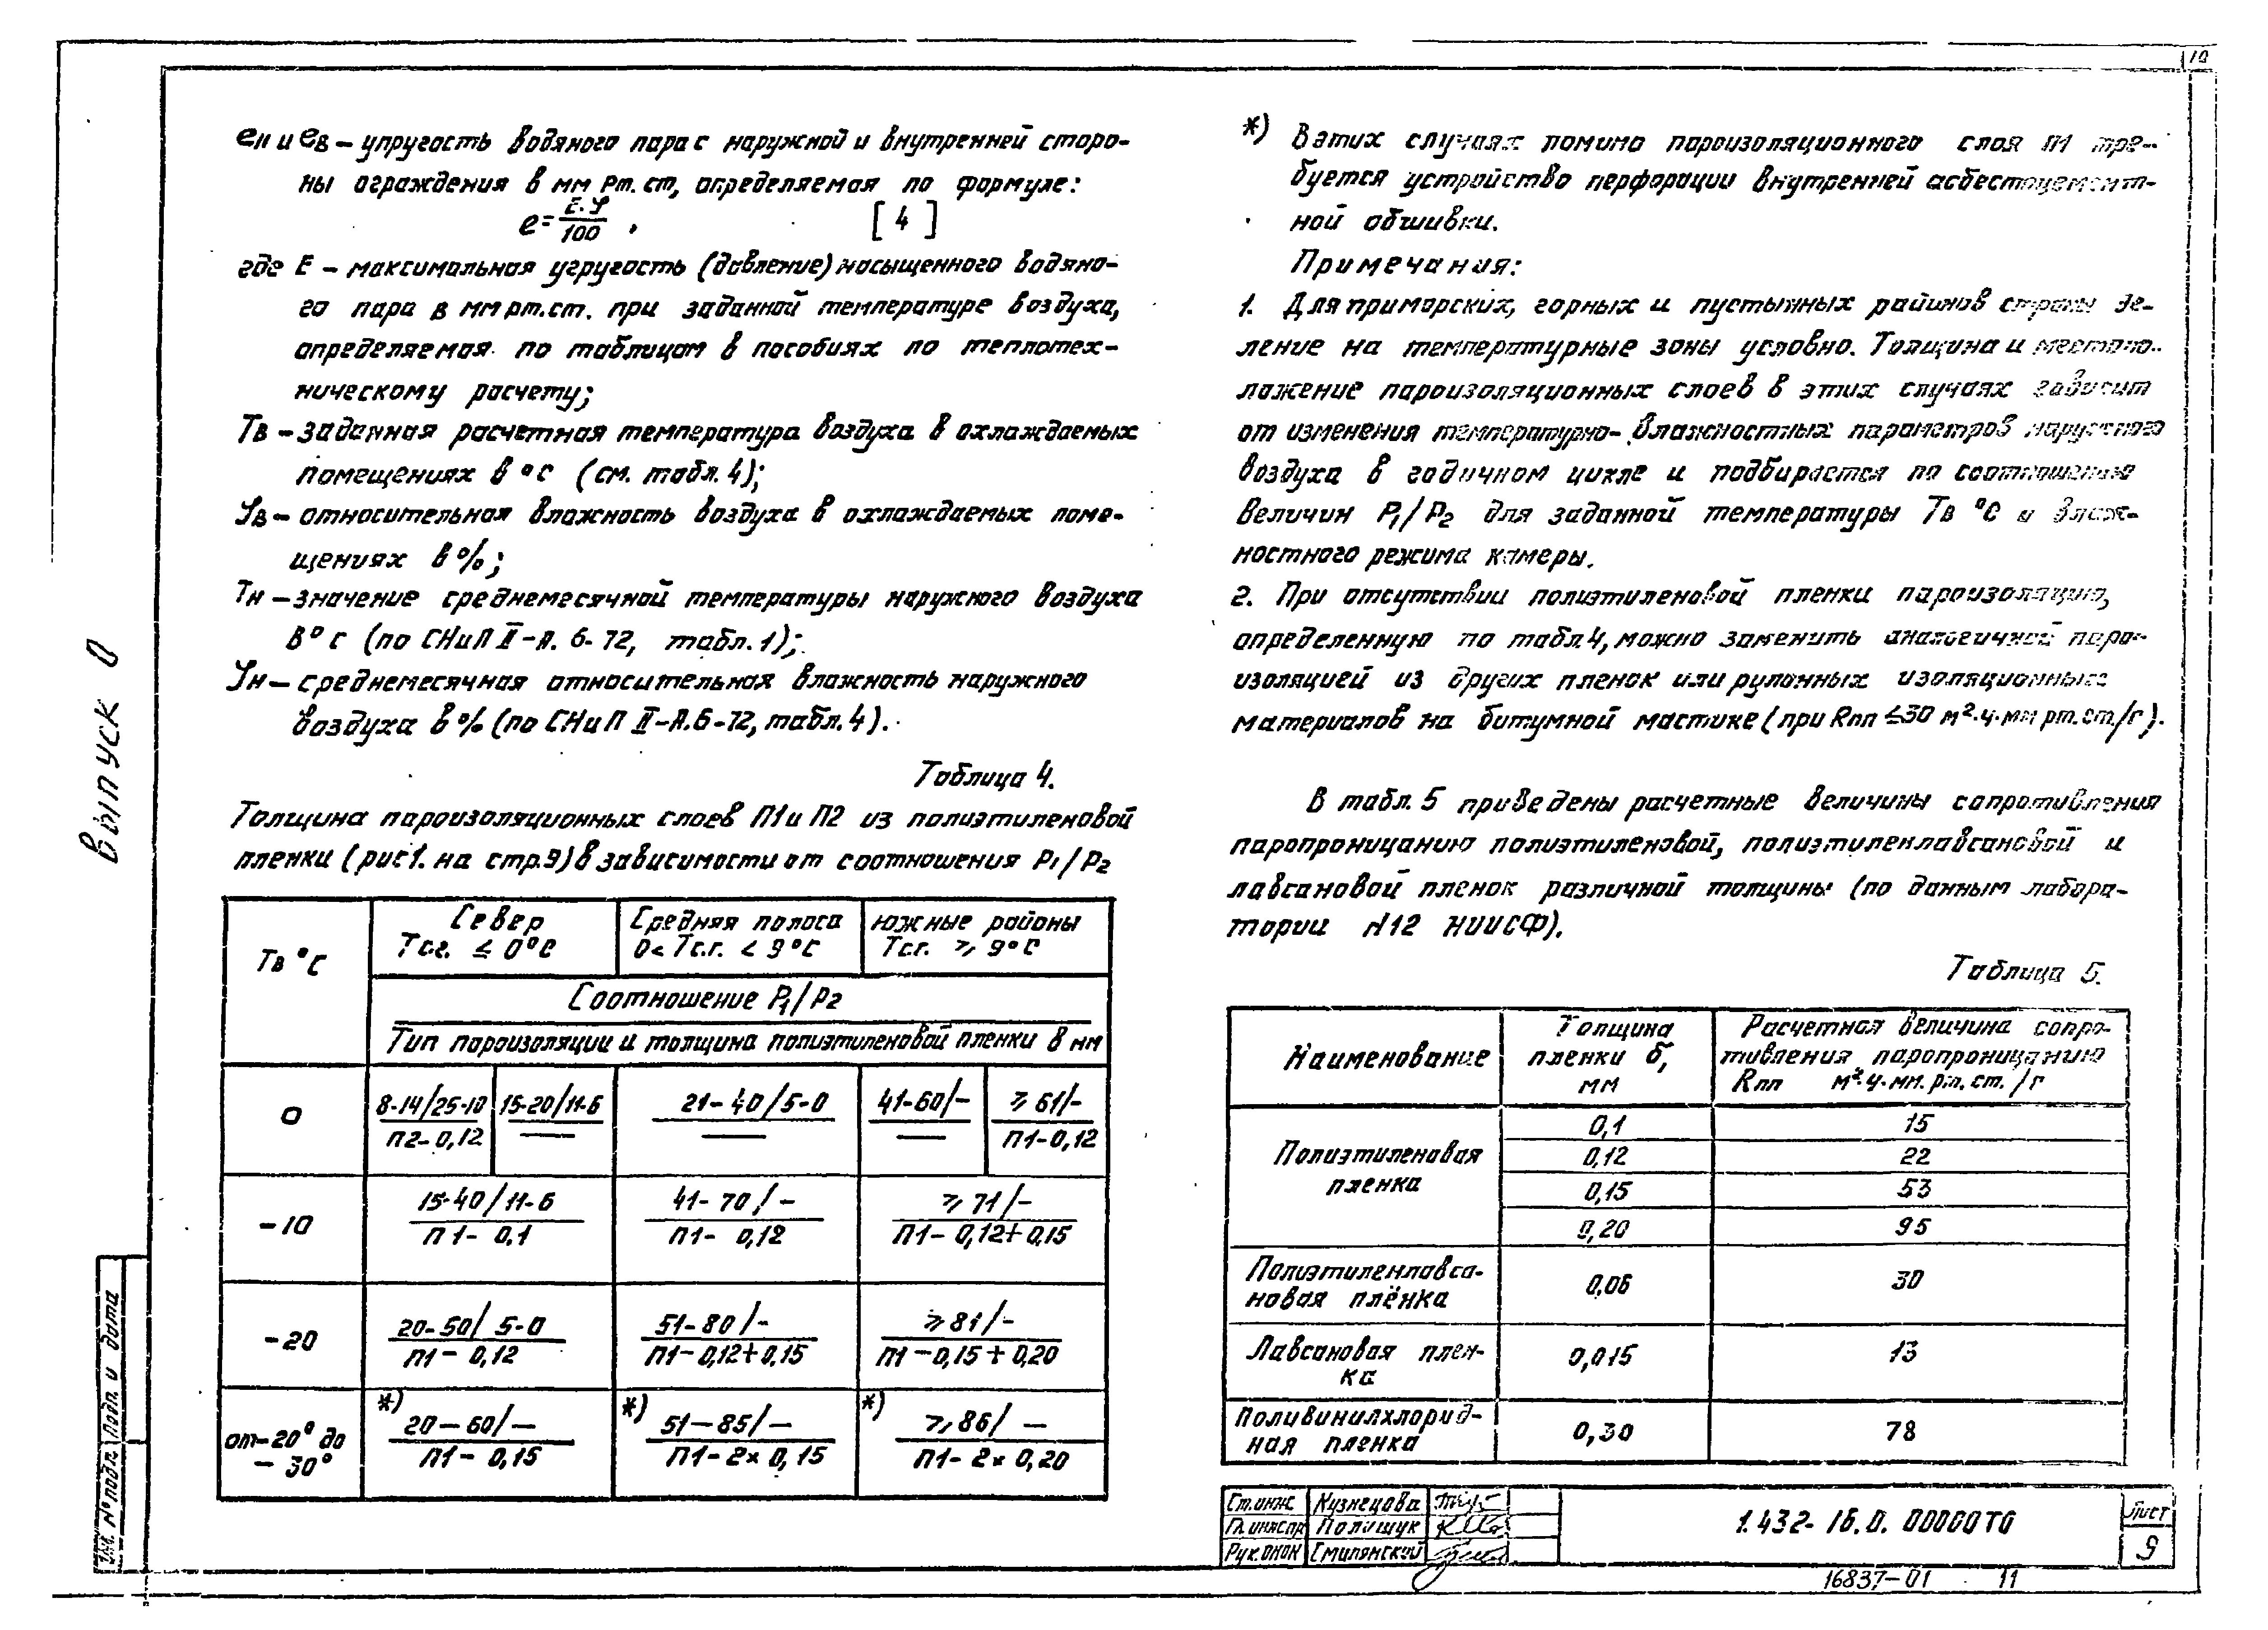 10
ен и ев – упругость водяного пара с наружной и внутренней сторо-
ны ограждения в мм рт. ст, определяемая по формуле:
e = E.φ/100 , [4]
где E – максимальная угругость (давление) насыщенного водяно-
го пара в мм рт.ст. при заданной температуре воздуха,
определяемая по таблицам в пособиях по теплотех-
ническому расчету;
Тв – заданная расчетная температура воздуха в охлаждаемых
помещениях в °С (см. табл. 4);
φв – относительная влажность воздуха в охлаждаемых поме-
щениях в %;
Тн – значение среднемесячной температуры наружного воздуха
в °С (по СНиП II-А. 6-72, табл. 1);
φн – среднемесячная относительная влажность наружного
воздуха в % (по СНиП II-А.6-72, табл. 4).
Таблица 4.
Толщина пароизоляционных слоев П1 и П2 из полиэтиленовой
пленки (рис 1. на стр.9) в зависимости от соотношения P1/P2
Тв °С
Север
Тс.г. ≤ 0°С
Средняя полоса
0< Тс.г. < 9°С
Южные районы
Тс.г. ≥ 9°С
Соотношение P1/P2
Тип пароизоляции и толщина полиэтиленовой пленки в мм
0
8-14/25-10
П2-0,12
15-20/11-6
—
21-40/5-0
—
41-60/-
—
≥ 61/-
П1-0,12
-10
15-40/11-6
П1- 0,1
41-70/-
П1- 0,12
≥ 71/-
П1- 0,12+0,15
-20
20-50/5-0
П1- 0,12
51-80/-
П1-0,12+0,15
≥ 81/-
П1-0,15+0,20
от-20° до
- 30°
*) 20-60/-
П1- 0,15
*) 51-85/-
П1-2х0,15
*) ≥ 86/ -
П1-2х0,20
*) В этих случаях помимо пароизоляционного слоя П1 тре-
буется устройство перфорации внутренней асбестоцемент-
ной обшивки.
Примечания:
1. Для приморских, горных и пустынных районов страны де-
ление на температурные зоны условно. Толщина и местопо-
ложение пароизоляционных слоев в этих случаях зависит
от изменения температурно-влажностных параметров наружного
воздуха в годичном цикле и подбирается по соотношению
величин P1/P2 для заданной температуры Тв °С и влаж-
ностного режима камеры.
2. При отсутствии полиэтиленовой пленки пароизоляцию,
определенную по табл.4, можно заменить аналогичной паро-
изоляцией из других пленок или рулонных изоляционных
материалов на битумной мастике (при Rпп ≤30 м².ч.мм рт.ст./г).
В табл. 5 приведены расчетные величины сопротивления
паропроницанию полиэтиленовой, полиэтиленлавсановой и
лавсановой пленок различной толщины (по данным лабора-
тории N12 НИИСФ).
Таблица 5.
Наименование
Толщина
пленки б,
мм
Расчетная величина сопро-
тивления паропроницанию
Rпп м².ч.мм. рт. ст. /г
Полиэтиленовая
пленка
0,1 15
0,12 22
0,15 53
0,20 95
Полиэтиленлавса-
новая плёнка
0,06 30
Лавсановая плен-
ка
0,015 13
Поливинилхлорид-
ная пленка
0,30 78
Ст.инж. Кузнецова
Гл.инж.пр Полищук
Рук.ОНОК Смилянский
1.432-16.0.00000ТО
Лист
9
16837-01 11
Выпуск 0
Инв. № подл. Подп. и дата